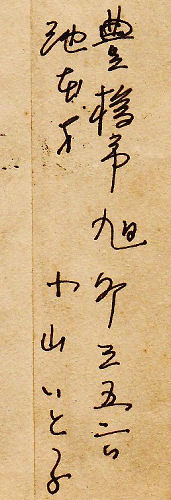 豊橋市旭町三五六
池本方 小山いと子